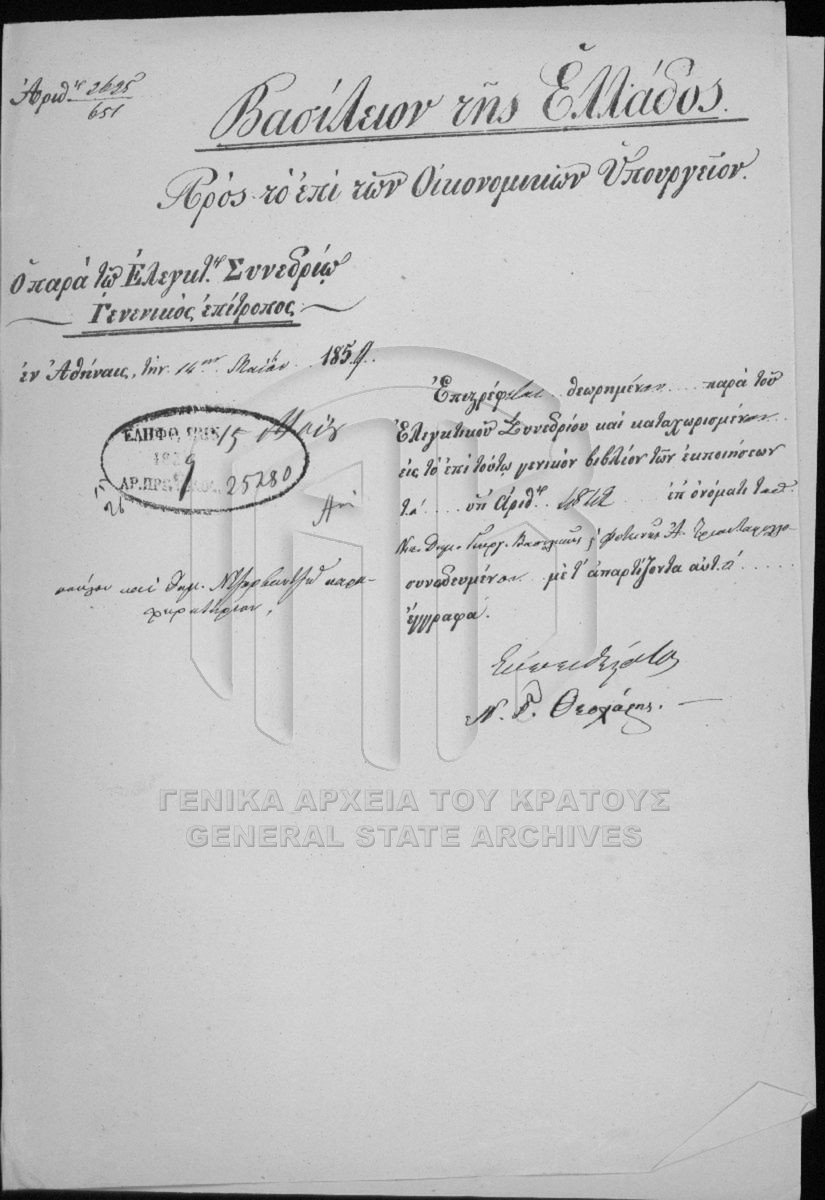 Ἀριθ. 2625
651
Βασίλειον τῆς Ἑλλάδος.
Πρὸς τὸ ἐπὶ τῶν Οἰκονομικῶν Ὑπουργεῖον.
Ὁ παρὰ τῷ Ἐλεγκτ. Συνεδρίῳ
Γενενικὸς ἐπίτροπος
ἐν Ἀθήναις, τὴν 14 Μαΐου 1859.
ΕΛΗΦΘΗ ΤΗΝ 15 Μαΐου
1859
ΑΡ. ΠΡΩΤ. 25280
Ἐπιστρέφεται θεωρημένον παρὰ τοῦ
Ἐλεγκτικοῦ Συνεδρίου καὶ καταχωρισμένον
εἰς τὸ ἐπὶ τούτῳ γενικὸν βιβλίον τῶν ἐκποιήσεων
τὸ ὑπ Ἀριθ. 1812 ἐπ ὀνόματι
Δημ. Γεωργ.
συνοδευμένον μὲ τ' ἀπαρτίζοντα αὐτὸ
ἔγγραφα.
καὶ Δημ.
Εὐπειθέστατος
Ν. Γ. Θεοχάρης.
ΓΕΝΙΚΑ ΑΡΧΕΙΑ ΤΟΥ ΚΡΑΤΟΥΣ
GENERAL STATE ARCHIVES